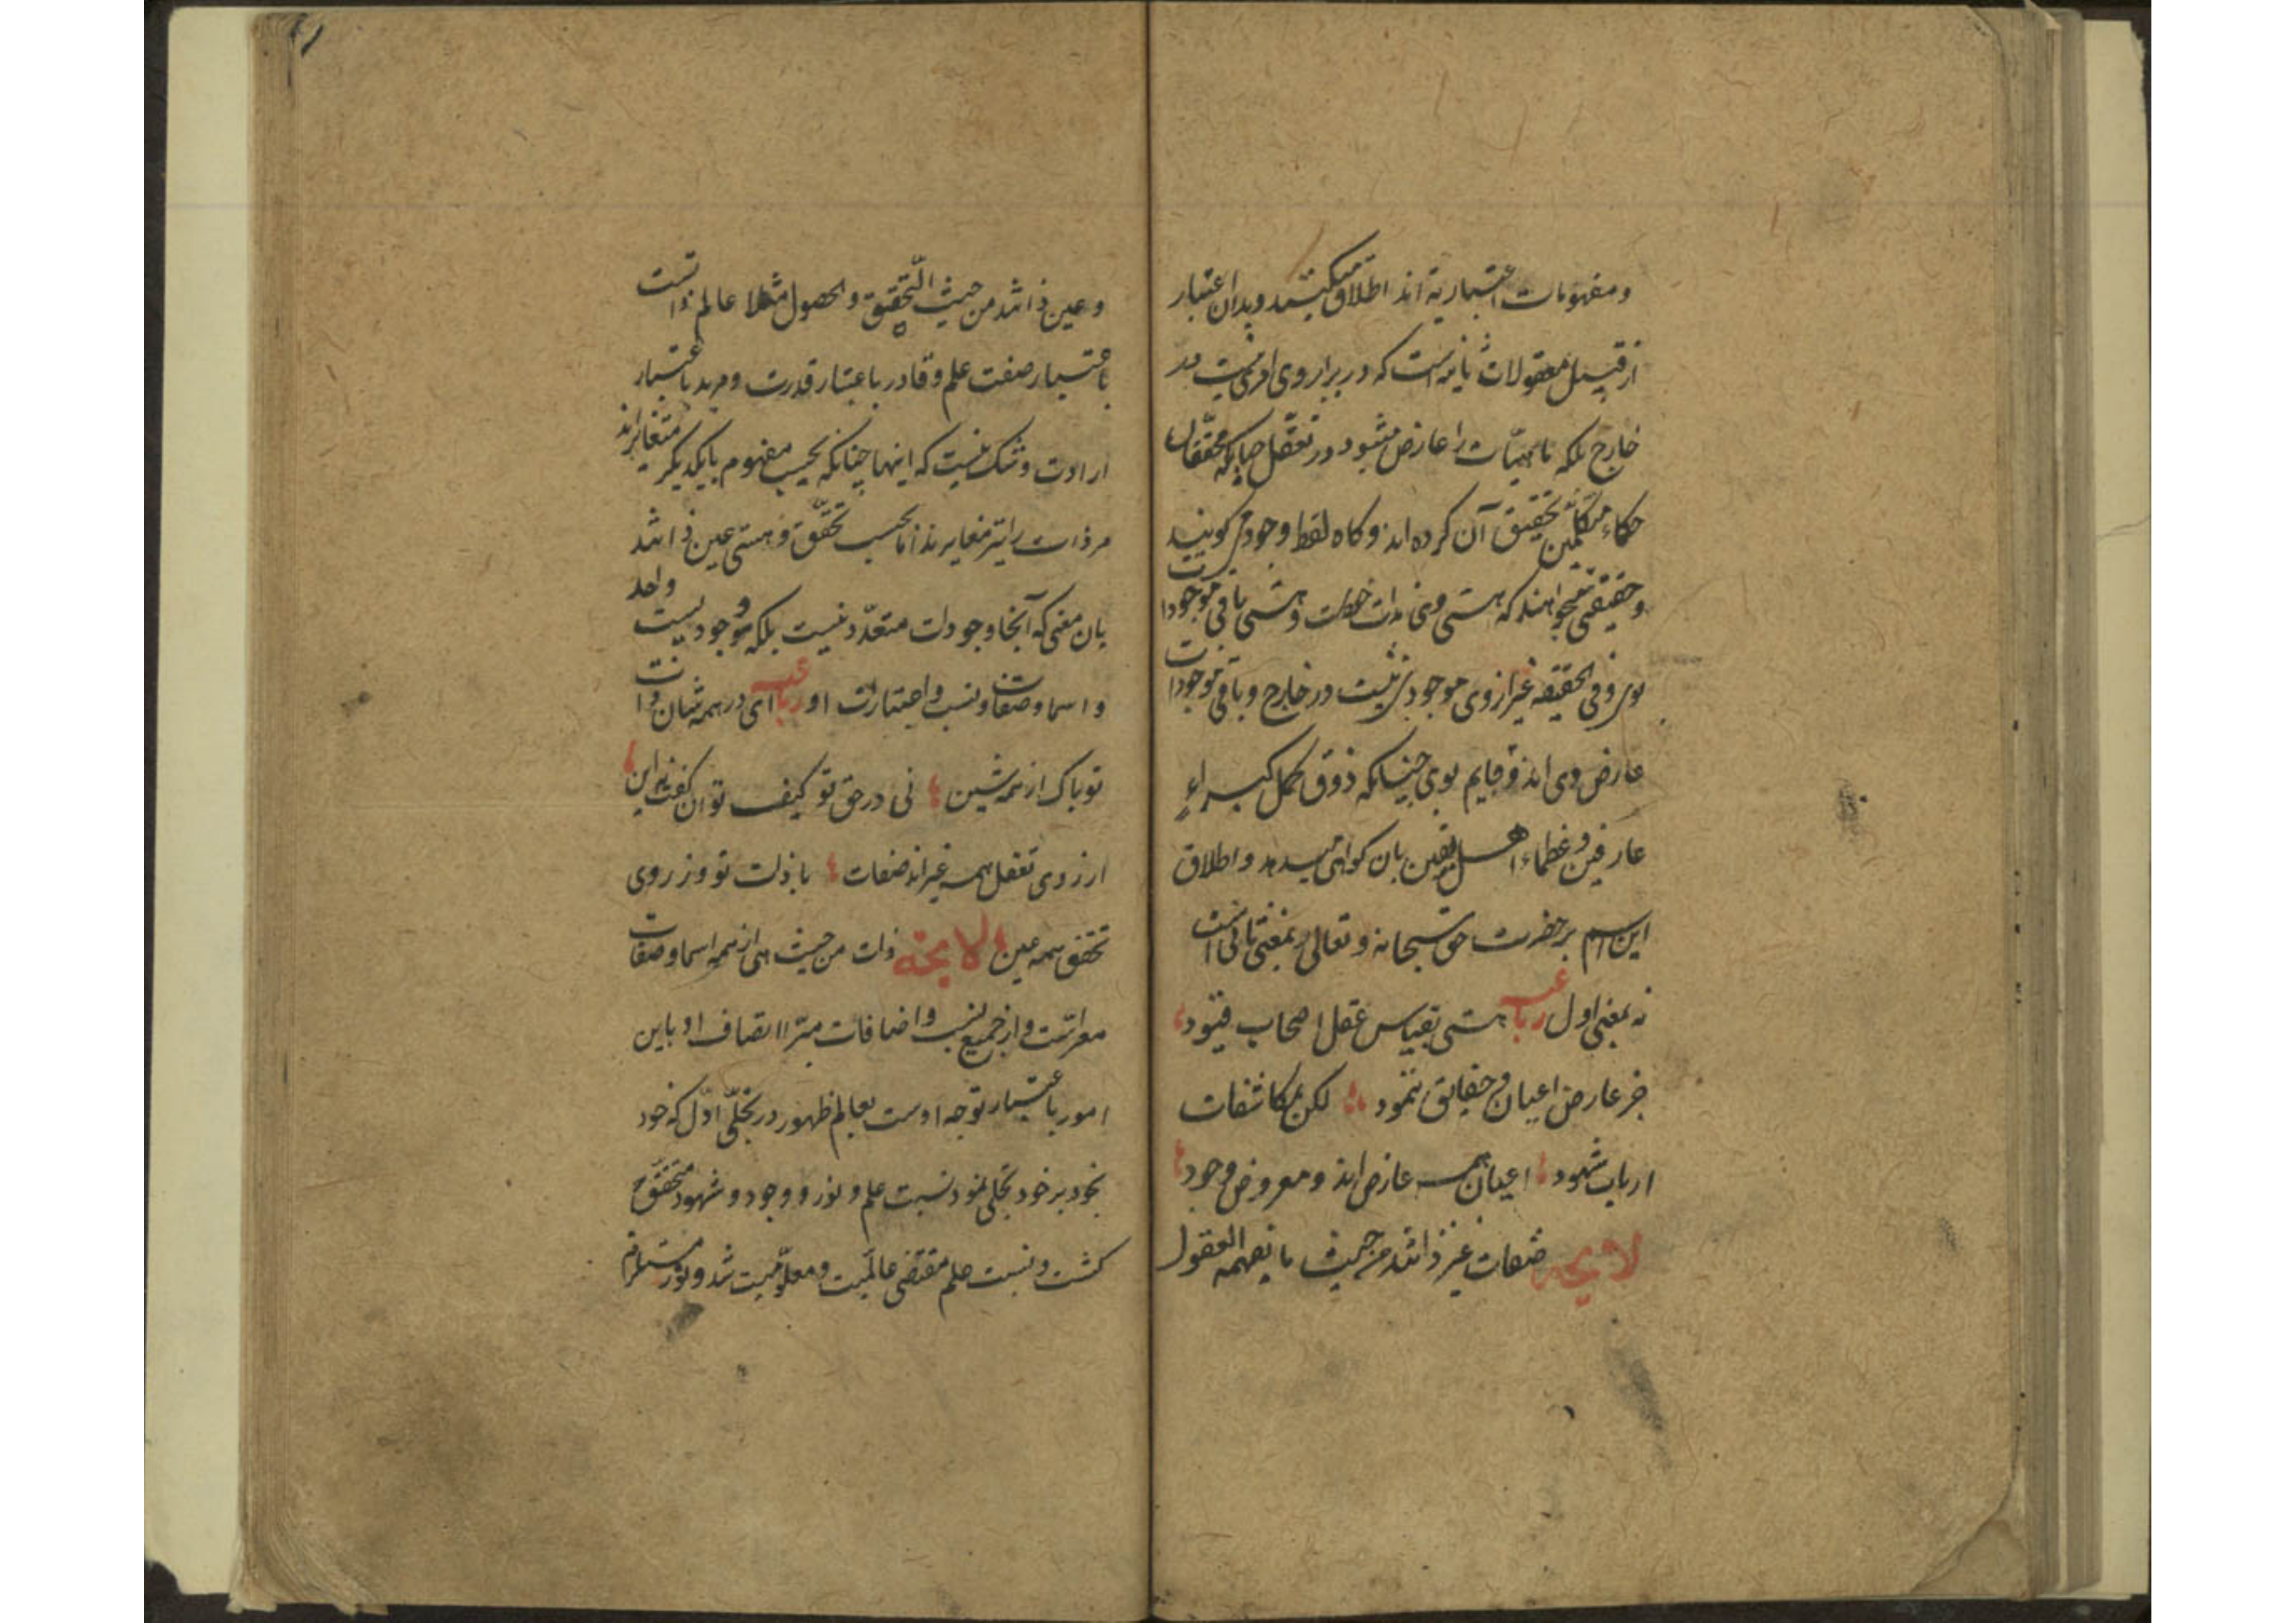 ومفهومات اعتباریه اند اطلاق میکنند وبدان اعتبار
از قبیل معقولات ثانیه است که در برابر وی امری نیست در
خارج بلکه ماهیّات را عارض میشود در تعقّل چنانکه محقّقان
حکماء و متکلّمین تحقیق آن کرده اند و کاه لفظ وجود می کویند
وحقیقتی میخواهند که هستی وی بذات خودست وهستی باقی موجودات
بوی وفی الحقیقه غیر از وی موجودی نیست در خارج وباقی موجودات
عارض وی اند وقایم بوی چنانکه ذوق کمل کبراءِ
عارفین وعظماء اهل یقین بان کواهی میدهد واطلاق
این اسم بر حضرت حق سبحانه وتعالی بمعنی ثانی است
نه بمعنی اول رباعیه هستی بقیاس عقل اصحاب قیود
جز عارض اعیان وحقایق ننمود لکن بمکاشفات
ارباب شهود اعیان همه عارض اند ومعروض وجود
لایحه صفات غیر ذاتند من حیث ما یفهمه العقول
وعین ذاتند من حیث التّحقیق والحصول مثلا عالم ذاتست
باعتبار صفت علم وقادر باعتبار قدرت ومرید باعتبار
ارادت وشک نیست که اینها چنانکه بحسب مفهوم بایکدیکر متغایراند
مر ذات را نیز مغایرند اما بحسب تحقّق وهستی عین ذاتند
بان معنی که آنجا وجودات متعدّد نیست بلکه وجودیست واحد
واسما وصفات ونسب واعتبارات او رباعیه ای در همه شان ذات
تو پاک از همه شین نی در حق تو کیف توان کفت نه این
از روی تعقل همه غیراند صفات با ذات تو وز روی
تحقق همه عین لایحه ذات من حیث هی از همه اسما وصفات
معراست واز جمیع نسب واضافات مبرّا اتصاف او باین
امور باعتبار توجه اوست بعالم ظهور در تجلّی اوّل که خود
بخود بر خود تجلی نمود نسبت علم ونور ووجود وشهود متحقّق
کشت ونسبت علم مقتضی عالمیّت ومعلومیّت شد ونور مستلزم